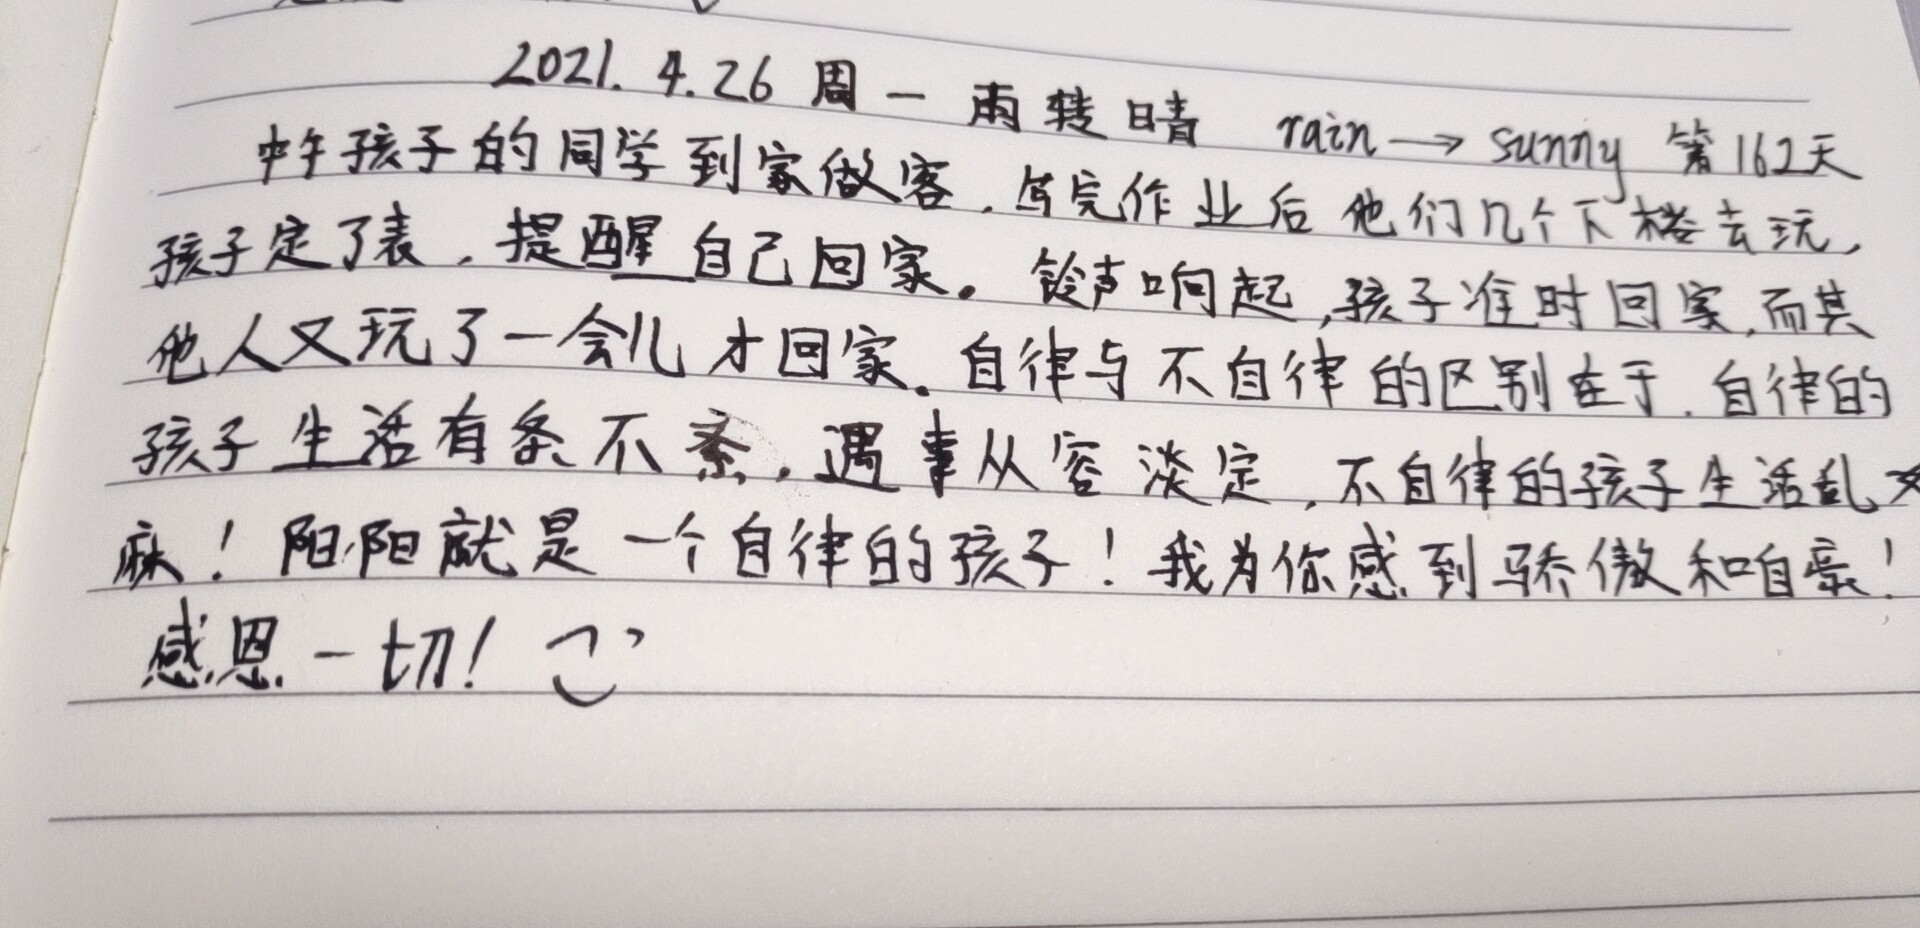 2021.4.26 周一 雨转晴 rain→sunny 第162天
中午孩子的同学到家做客，写完作业后他们几个下楼去玩，
孩子定了表，提醒自己回家。铃声响起，孩子准时回家，而其
他人又玩了一会儿才回家。自律与不自律的区别在于，自律的
孩子生活有条不紊，遇事从容淡定，不自律的孩子生活乱
麻！阳阳就是一个自律的孩子！我为你感到骄傲和自豪！
感恩一切！